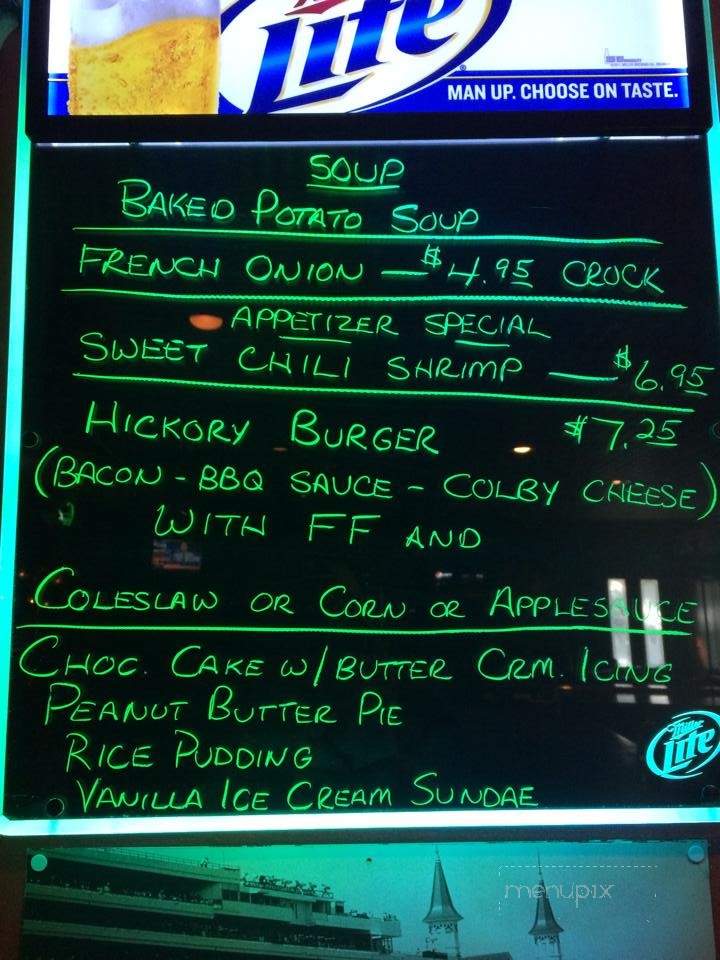 Lite
MAN UP. CHOOSE ON TASTE.
SOUP
BAKED POTATO SOUP
FRENCH ONION — $4.95 CROCK
APPETIZER SPECIAL
SWEET CHILI SHRIMP — $6.95
HICKORY BURGER $7.25
(BACON - BBQ SAUCE - COLBY CHEESE)
WITH FF AND
COLESLAW OR CORN OR APPLESAUCE
CHOC. CAKE W/ BUTTER CRM. ICING
PEANUT BUTTER PIE
RICE PUDDING
VANILLA ICE CREAM SUNDAE
Miller
Lite
menupix